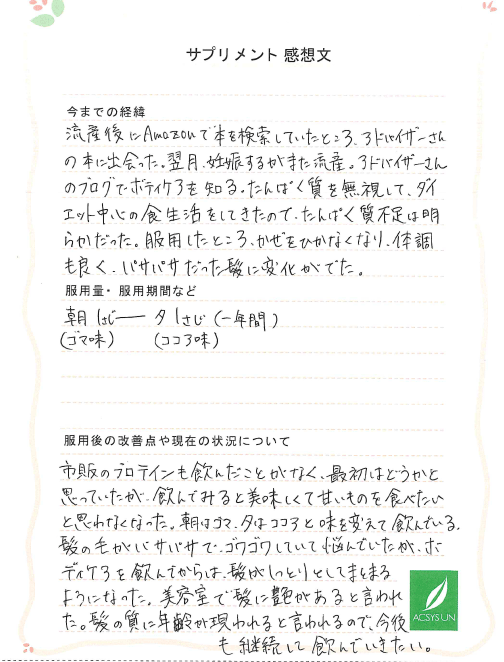 サプリメント 感想文
今までの経緯
流産後にAmazonで本を検索していたところ、アドバイザーさん
の本に出会った。翌月、妊娠するがまた流産。アドバイザーさん
のブログでボディケアを知る。たんぱく質を無視して、ダイ
エット中心の食生活をしてきたので、たんぱく質不足は明
らかだった。服用したところ、かぜをひかなくなり、体調
も良く、パサパサだった髪に変化がでた。
服用量・服用期間など
朝 1さじ ― 夕 1さじ (一年間)
(ゴマ味) (ココア味)
服用後の改善点や現在の状況について
市販のプロテインも飲んだことがなく、最初はどうかと
思っていたが、飲んでみると美味しくて甘いものを食べたい
と思わなくなった。朝はゴマ、夕はココアと味を変えて飲んでいる。
髪の毛がパサパサで、ゴワゴワしていて悩んでいたが、ボ
ディケアを飲んでからは、髪がしっとりとしてまとまる
ようになった。美容室で髪に艶があると言われ
た。髪の質に年齢が現われると言われるので、今後
も継続して飲んでいきたい。
ACSYSUN